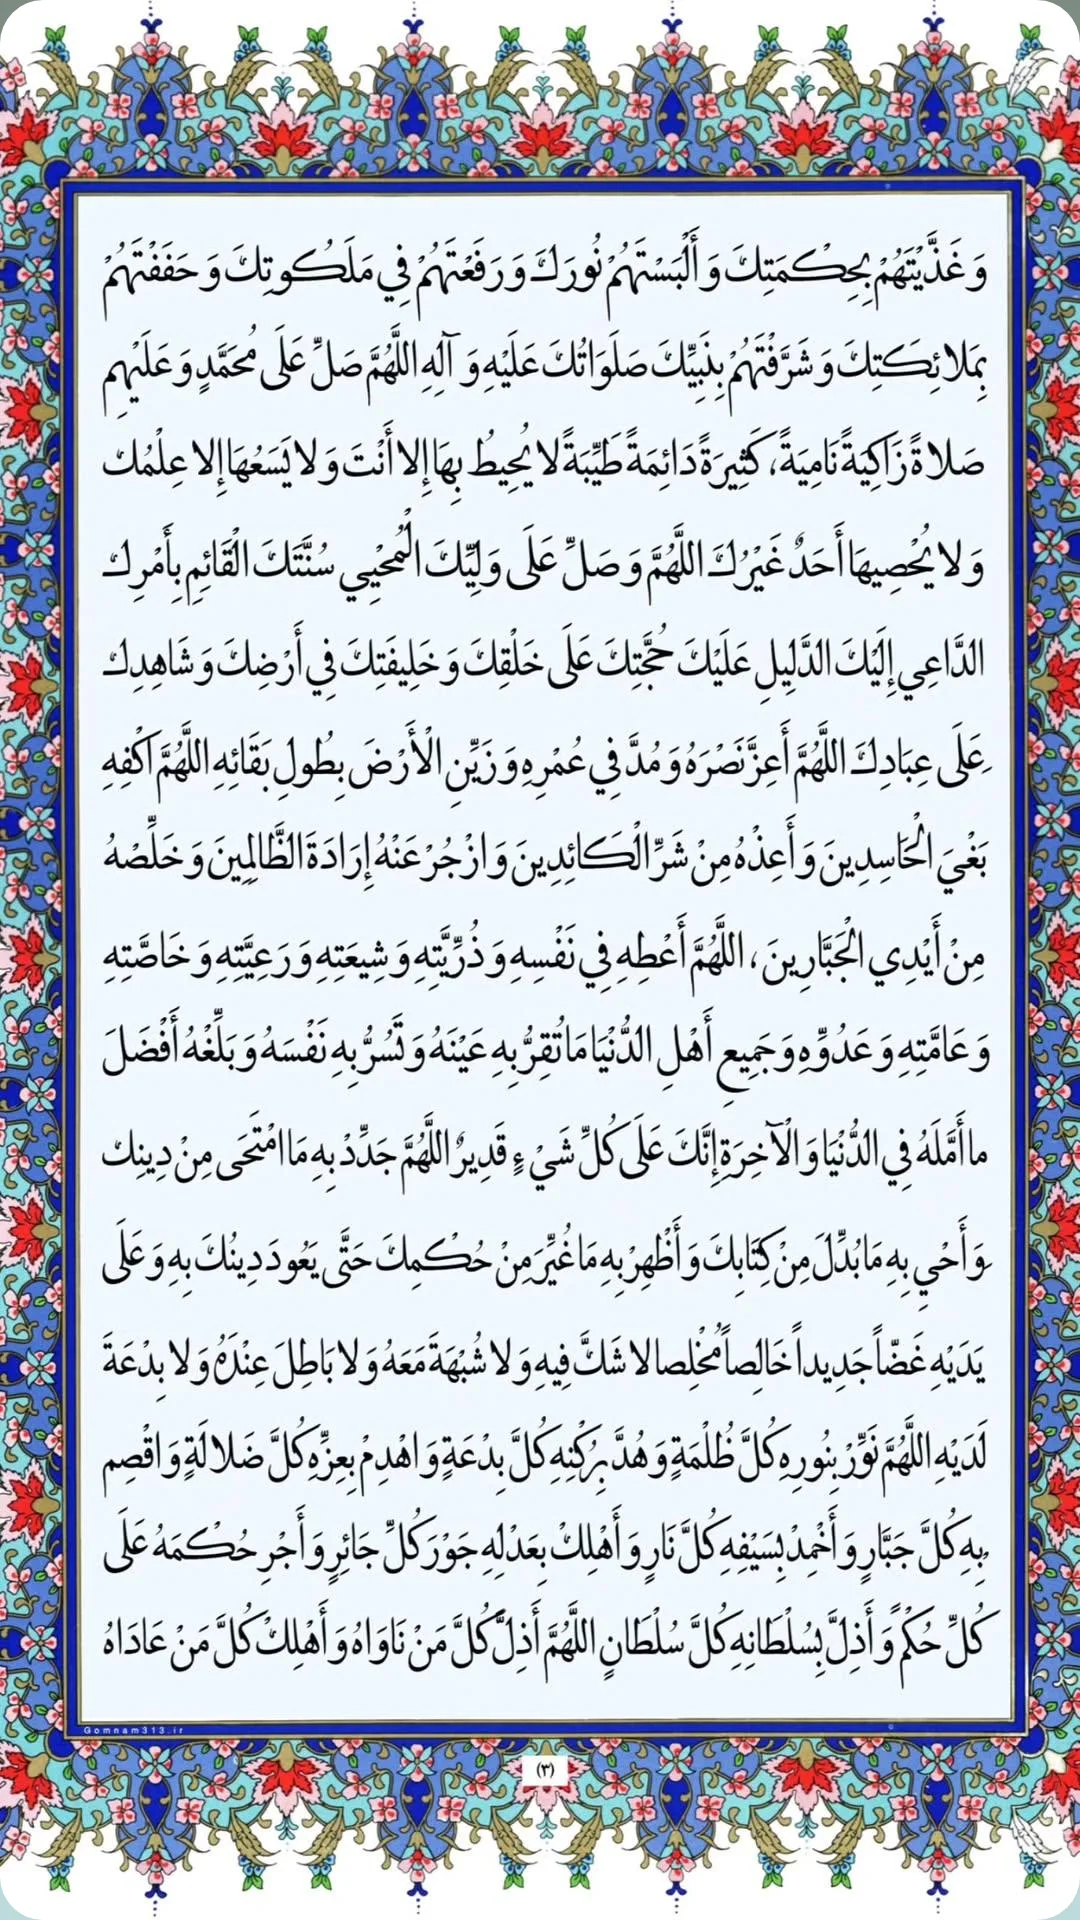 وَ غَذَّيْتَهُمْ بِحِكْمَتِكَ وَ أَلْبَسْتَهُمْ نُورَكَ وَ رَفَعْتَهُمْ فِي مَلَكُوتِكَ وَ حَفَفْتَهُمْ
بِمَلائِكَتِكَ وَ شَرَّفْتَهُمْ بِنَبِيِّكَ صَلَوَاتُكَ عَلَيْهِ وَ آلِهِ اللَّهُمَّ صَلِّ عَلَى مُحَمَّدٍ وَ عَلَيْهِمْ
صَلاةً زَاكِيَةً نَامِيَةً، كَثِيرَةً دَائِمَةً طَيِّبَةً لا يُحِيطُ بِهَا إِلا أَنْتَ وَ لا يَسَعُهَا إِلا عِلْمُكَ
وَ لا يُحْصِيهَا أَحَدٌ غَيْرُكَ اللَّهُمَّ وَ صَلِّ عَلَى وَلِيِّكَ الْمُحْيِي سُنَّتَكَ الْقَائِمِ بِأَمْرِكَ
الدَّاعِي إِلَيْكَ الدَّلِيلِ عَلَيْكَ حُجَّتِكَ عَلَى خَلْقِكَ وَ خَلِيفَتِكَ فِي أَرْضِكَ وَ شَاهِدِكَ
عَلَى عِبَادِكَ اللَّهُمَّ أَعِزَّ نَصْرَهُ وَ مُدَّ فِي عُمْرِهِ وَ زَيِّنِ الْأَرْضَ بِطُولِ بَقَائِهِ اللَّهُمَّ اكْفِهِ
بَغْيَ الْحَاسِدِينَ وَ أَعِذْهُ مِنْ شَرِّ الْكَائِدِينَ وَ ازْجُرْ عَنْهُ إِرَادَةَ الظَّالِمِينَ وَ خَلِّصْهُ
مِنْ أَيْدِي الْجَبَّارِينَ، اللَّهُمَّ أَعْطِهِ فِي نَفْسِهِ وَ ذُرِّيَّتِهِ وَ شِيعَتِهِ وَ رَعِيَّتِهِ وَ خَاصَّتِهِ
وَ عَامَّتِهِ وَ عَدُوِّهِ وَ جَمِيعِ أَهْلِ الدُّنْيَا مَا تُقِرُّ بِهِ عَيْنَهُ وَ تَسُرُّ بِهِ نَفْسَهُ وَ بَلِّغْهُ أَفْضَلَ
ما أَمَّلَهُ فِي الدُّنْيَا وَ الْآخِرَةِ إِنَّكَ عَلَى كُلِّ شَيْءٍ قَدِيرٌ اللَّهُمَّ جَدِّدْ بِهِ مَا امْتَحَى مِنْ دِينِكَ
وَ أَحْيِ بِهِ مَا بُدِّلَ مِنْ كِتَابِكَ وَ أَظْهِرْ بِهِ مَا غُيِّرَ مِنْ حُكْمِكَ حَتَّى يَعُودَ دِينُكَ بِهِ وَ عَلَى
يَدَيْهِ غَضّاً جَدِيداً خَالِصاً مُخْلِصا لا شَكَّ فِيهِ وَ لا شُبْهَةَ مَعَهُ وَ لا بَاطِلَ عِنْدَهُ وَ لا بِدْعَةَ
لَدَيْهِ اللَّهُمَّ نَوِّرْ بِنُورِهِ كُلَّ ظُلْمَةٍ وَ هُدَّ بِرُكْنِهِ كُلَّ بِدْعَةٍ وَ اهْدِمْ بِعِزِّهِ كُلَّ ضَلالَةٍ وَ اقْصِمْ
بِهِ كُلَّ جَبَّارٍ وَ أَخْمِدْ بِسَيْفِهِ كُلَّ نَارٍ وَ أَهْلِكْ بِعَدْلِهِ جَوْرَ كُلِّ جَائِرٍ وَ أَجْرِ حُكْمَهُ عَلَى
كُلِّ حُكْمٍ وَ أَذِلَّ بِسُلْطَانِهِ كُلَّ سُلْطَانٍ اللَّهُمَّ أَذِلَّ كُلَّ مَنْ نَاوَاهُ وَ أَهْلِكْ كُلَّ مَنْ عَادَاهُ
Gomnam313.ir
(٣)